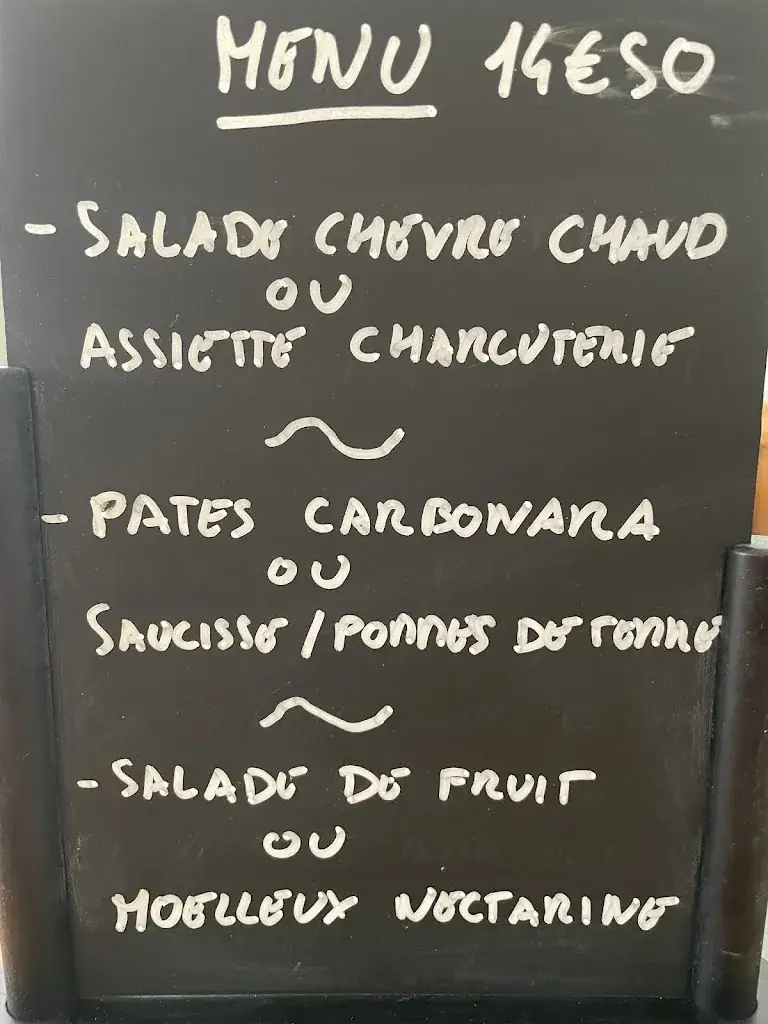 MENU 14€50
- SALADE CHEVRE CHAUD
OU
ASSIETTE CHARCUTERIE
~
- PATES CARBONARA
OU
SAUCISSE / POMMES DE TERRE
~
- SALADE DE FRUIT
OU
MOELLEUX NECTARINE